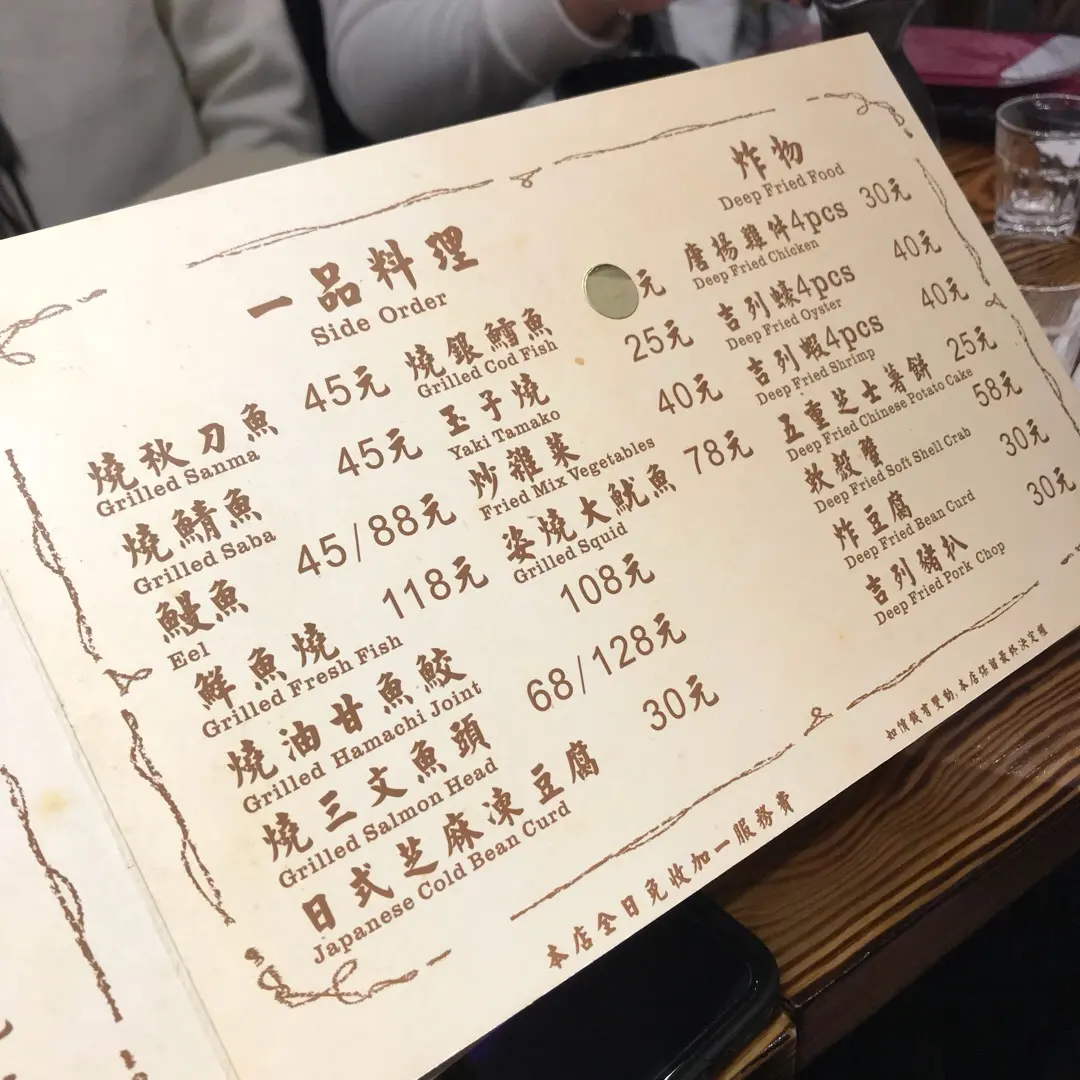 一品料理
Side Order
燒秋刀魚 45元
Grilled Sanma
燒鯖魚 45元
Grilled Saba
鰻魚 45/88元
Eel
鮮魚燒 118元
Grilled Fresh Fish
燒油甘魚鮫 108元
Grilled Hamachi Joint
燒三文魚頭 68/128元
Grilled Salmon Head
日式芝麻凍豆腐 30元
Japanese Cold Bean Curd
燒銀鱈魚 元
Grilled Cod Fish
玉子燒 25元
Yaki Tamako
炒雜菜 40元
Fried Mix Vegetables
姿燒大魷魚 78元
Grilled Squid
炸物
Deep Fried Food
唐揚雞件4pcs 30元
Deep Fried Chicken
吉列蠔4pcs 40元
Deep Fried Oyster
吉列蝦4pcs 40元
Deep Fried Shrimp
五重芝士薯餅 25元
Deep Fried Chinese Potato Cake
軟殼蟹 58元
Deep Fried Soft Shell Crab
炸豆腐 30元
Deep Fried Bean Curd
吉列豬扒 30元
Deep Fried Pork Chop
如價錢有變動,本店保留最終決定權
本店全日免收加一服務費